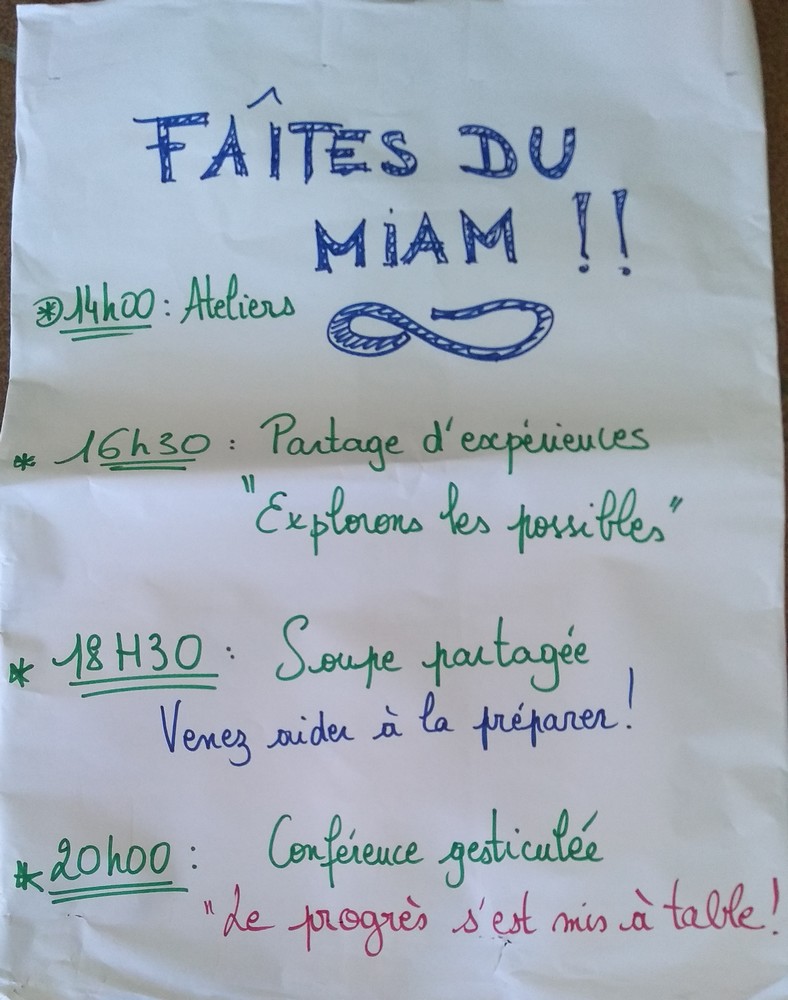 FAÎTES DU
MIAM !!
* 14h00 : Ateliers
* 16h30 : Partage d'expériences
"Explorons les possibles"
* 18H30 : Soupe partagée
Venez aider à la préparer !
* 20h00 : Conférence gesticulée
"Le progrès s'est mis à table !